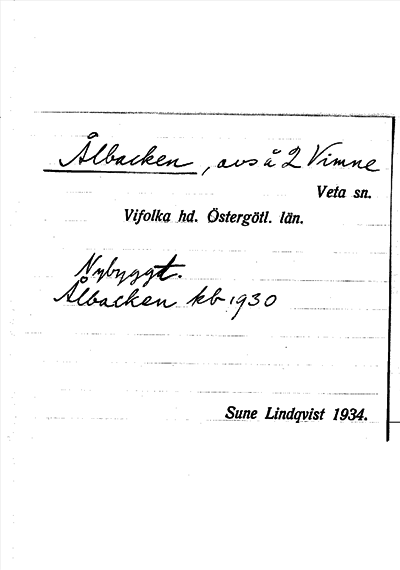 Ålbacken, avs å 2 Vimne
Veta sn.
Vifolka hd. Östergötl. län.
Nybyggt.
Ålbacken kb 1930
Sune Lindqvist 1934.